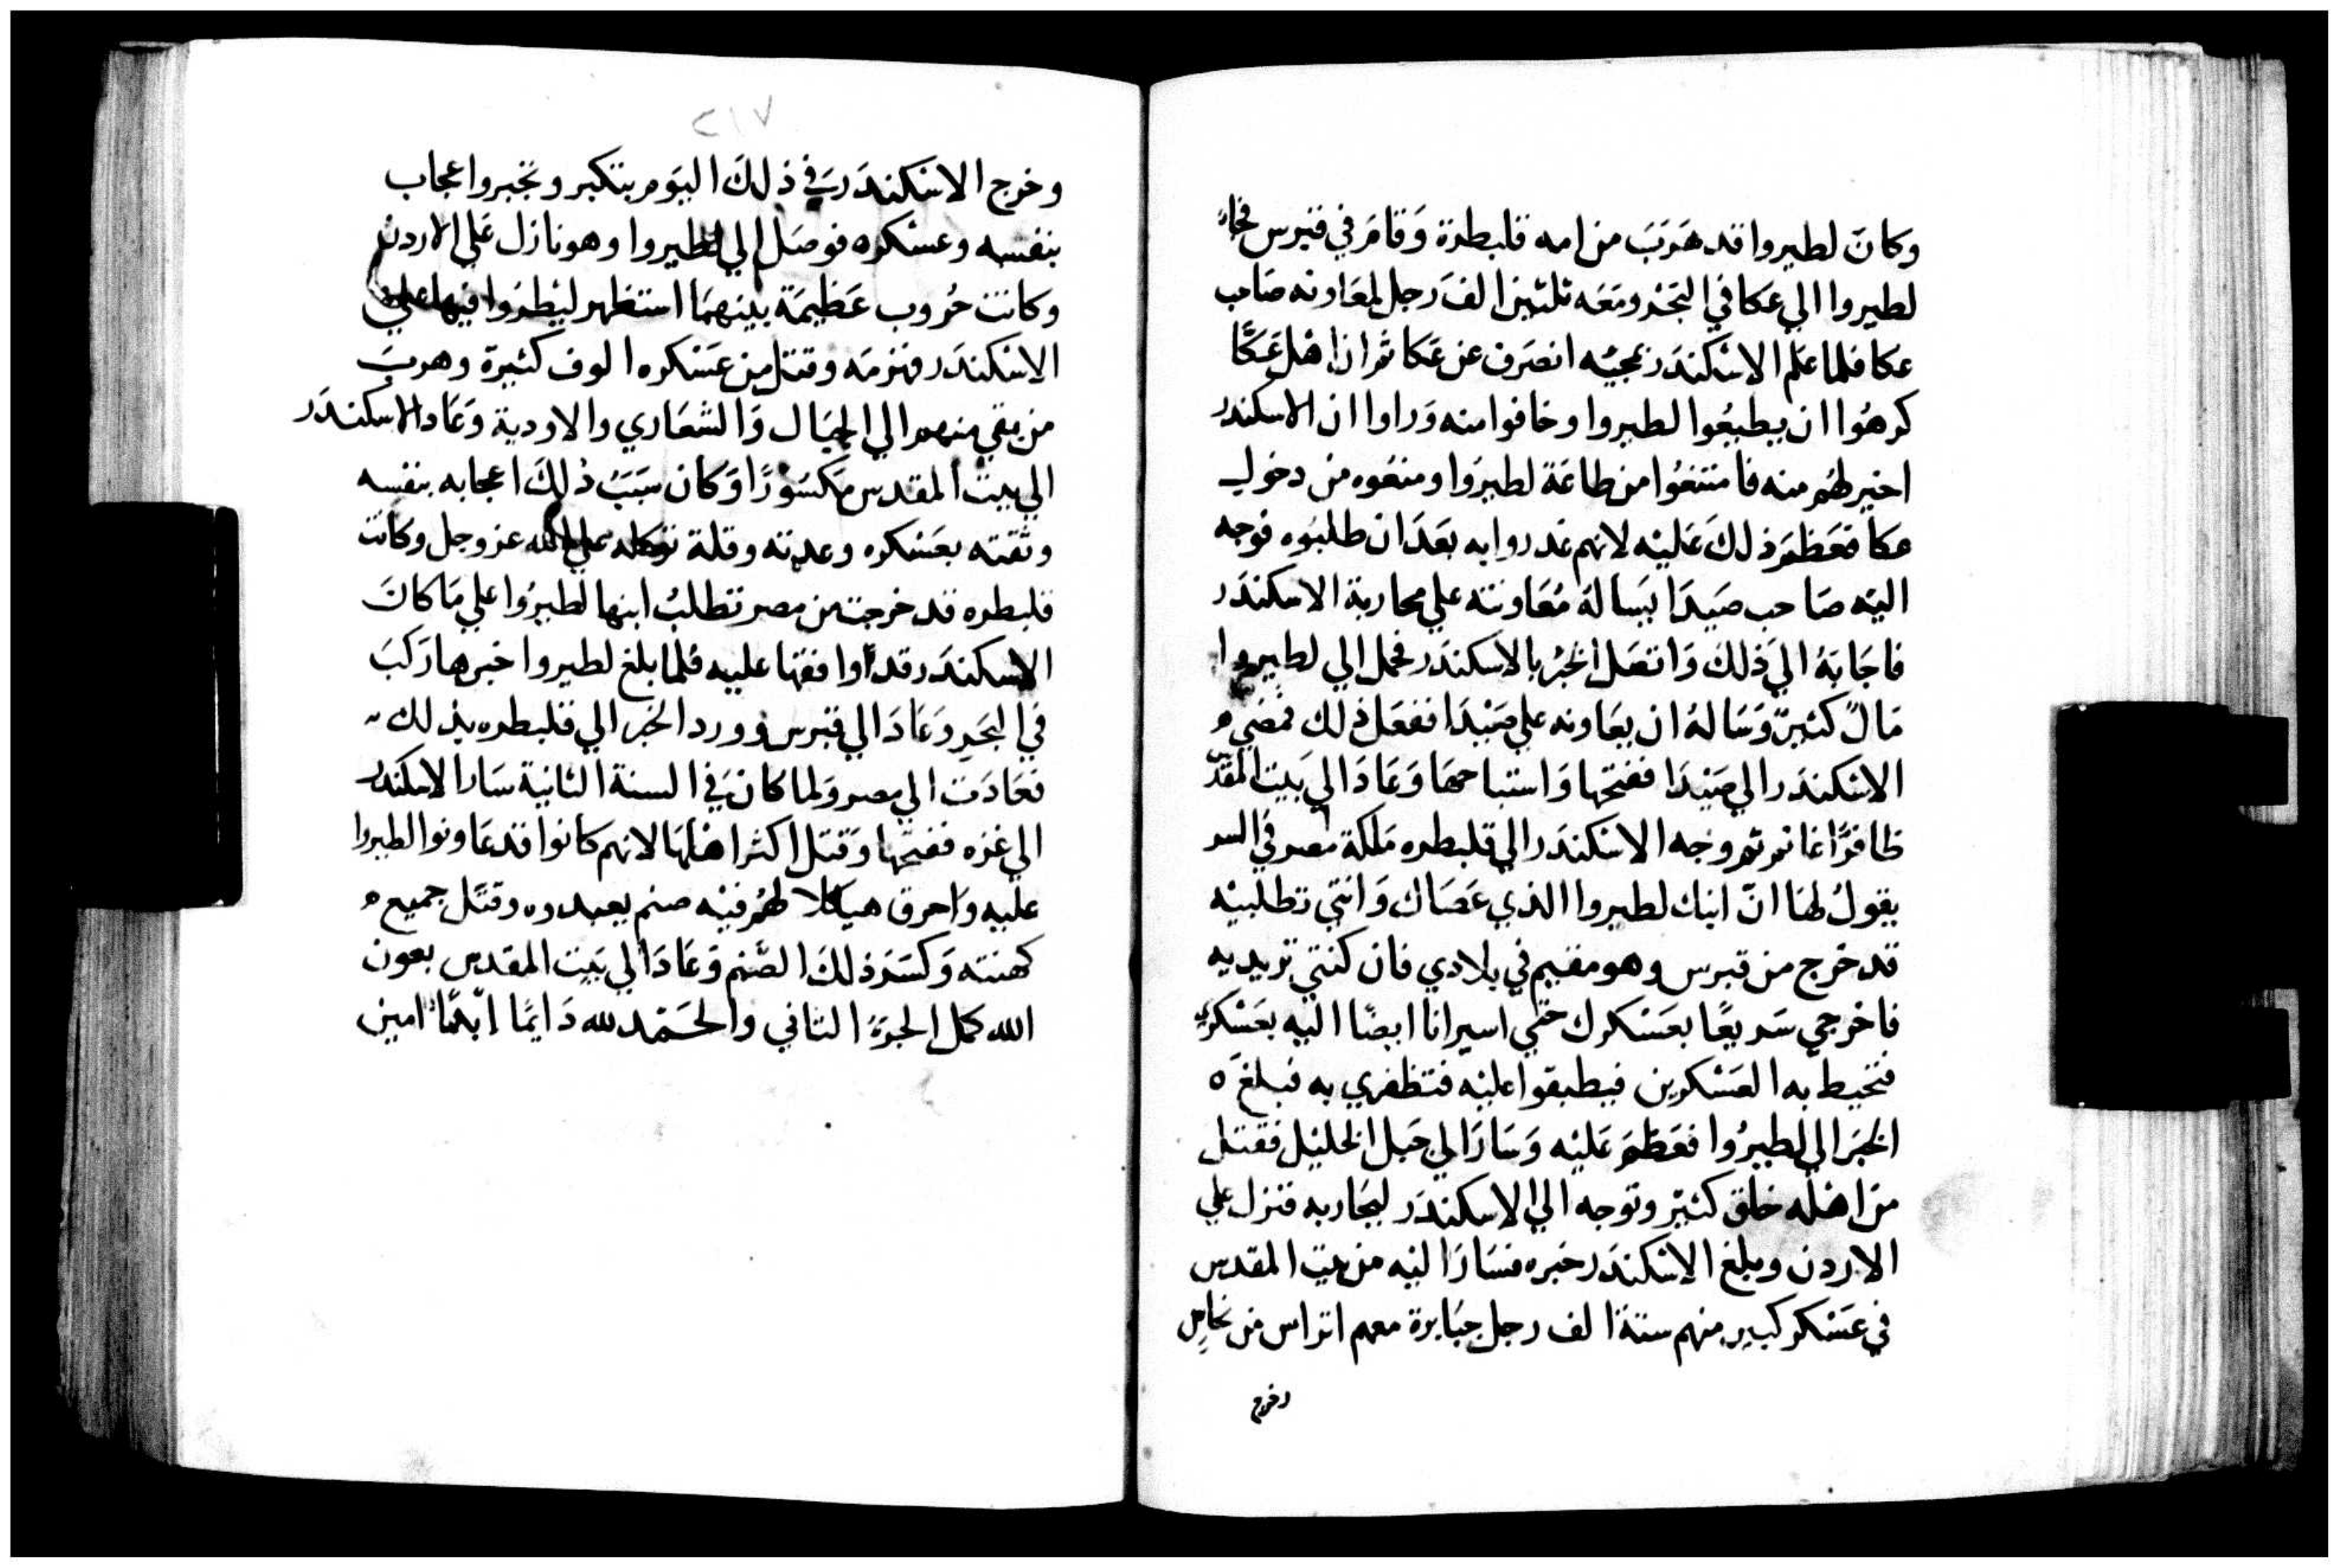 وكان لطيروا قد هَرَبَ من امه قلبطرة وَقامَ في قبرس فجاءَ
لطيروا الي عكا في البَحْر ومَعَه ثلثين الفَ رجل لمعَاونه صَاحب
عكا فلما علم الاسْكندَر بمجيئه انصَرف عن عَكا ثمر ان اهْل عَكّا
كرهُوا ان يطيعُوا لطيروا وخافوا منه وَراوا ان الاسكندر
اخير لهُم منه فامتنعُوا من طاعَة لطيرُوا ومنعُوه من دخول
عكا فعَظمَ ذلكَ عَليْه لانهم غدروا به بعَدَ ان طلبُوه فوجه
اليْه صَاحب صَيدَا يَسالهُ مُعَاونته علي محاربة الاسكندَر
فاجَابَهُ اليَ ذلكَ وَاتصَل الخبرُ بالاسكندَر فحمل الي لطيروا
مَالً كثيرً وَسَالهُ ان يعَاونه علي صَيْدَا ففعَل ذلك فمضي
الاسْكندَر الي صَيْدَا ففتحها وَاستباحهَا وَعَادَ الي بَيت المقدّ
ظافرًا غانم ثم وجه الاسْكندَر الي قلبطره مَلكة مصر في السر
يقولُ لهَا انّ ابنك لطيروا الذي عَصَاك وَانتي تطلبيْه
قد خرج من قبرس وهو مقيم في بلادي فان كنتي تريديه
فاخرجي سَريعًا بعَسْكرك حَتي اسير انا ايضًا اليه بعَسْكري
فتحيط به العَسْكرين فيطبقوا عليْه فتظفري به فبلغَ ه
الخبرَ الي لطيرُوا فعَظمَ عَليْه وَسَارَ الي جَبل الخليْل فقتل
من اهْله خلق كثيرْ وتوجه الي الاسكندَر ليحَاربه فنزل علي
الاردن وبلغ الاسْكندَر خبره فسَارَ اليْه من بيت المقدس
في عَسْكر كبير منهم ستة الف رجل جبَابرة معهم اتراس من نحاسٍ
وخرج
٢١٧
وخرج الاسْكندَر في ذلكَ اليَوم بتكبر وتجبر واعجاب
بنفسه وعسْكره فوصَل الي لطيروا وهو نازل عَلي الاردن
وكانت حُروب عَظيمَة بينهمَا استظهر ليْطرُوا فيها علي
الاسْكندَر فهزمَه وقتل من عَسْكره الوف كثيرة وهربَ
من بقي منهم الي الجبَال وَالشعَاري والاودية وَعَاد الاسكندَر
الي بيت المقدس مَكسَورًا وَكان سَبَبُ ذلكَ اعجابه بنفسه
وثقته بعَسْكره وعدته وقلة توكله علي الله عز وجل وكانت
قلبطره قد خرجت من مصر تطلبُ ابنها لطيرُوا علي مَا كانَ
الاسكندَر قد اوافقها عليه فلما بلغ لطيروا خبرها رَكبَ
في البَحَر وَعَادَ الي قبرس وورد الخبر الي قلبطره بذلك
فعَادَت الي مصر وَلما كان في السنة الثانية سَار الاسكندر
الي غزه ففتحها وَقتل اكثر اهْلهَا لانهم كانوا قد عَاونوا لطيروا
عليه وَاحرق هيكلا لهُم فيْه صنم يعبدوه وقتل جميع ه
كهنته وَكسَرَ ذلكَ الصّنم وَعَادَ الي بَيت المقدس بعون
الله كمل الجزؤ الثاني والحَمْد لله دَايمًا ابدًا امين